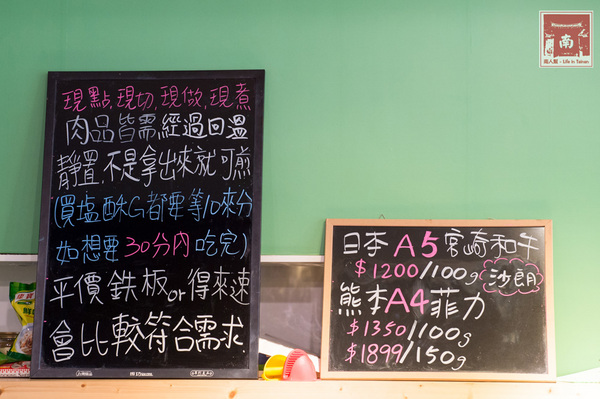 現點,現切,現做,現煮
肉品皆需經過回溫
靜置,不是拿出來就可煎
(買塩酥G都要等10來分
如想要30分內吃完)
平價鉄板or得來速
會比較符合需求.
日本A5宮崎和牛
$1200/100g 沙朗
熊本A4菲力
$1350/100g
$1899/150g
南
南人幫·Life in Tainan